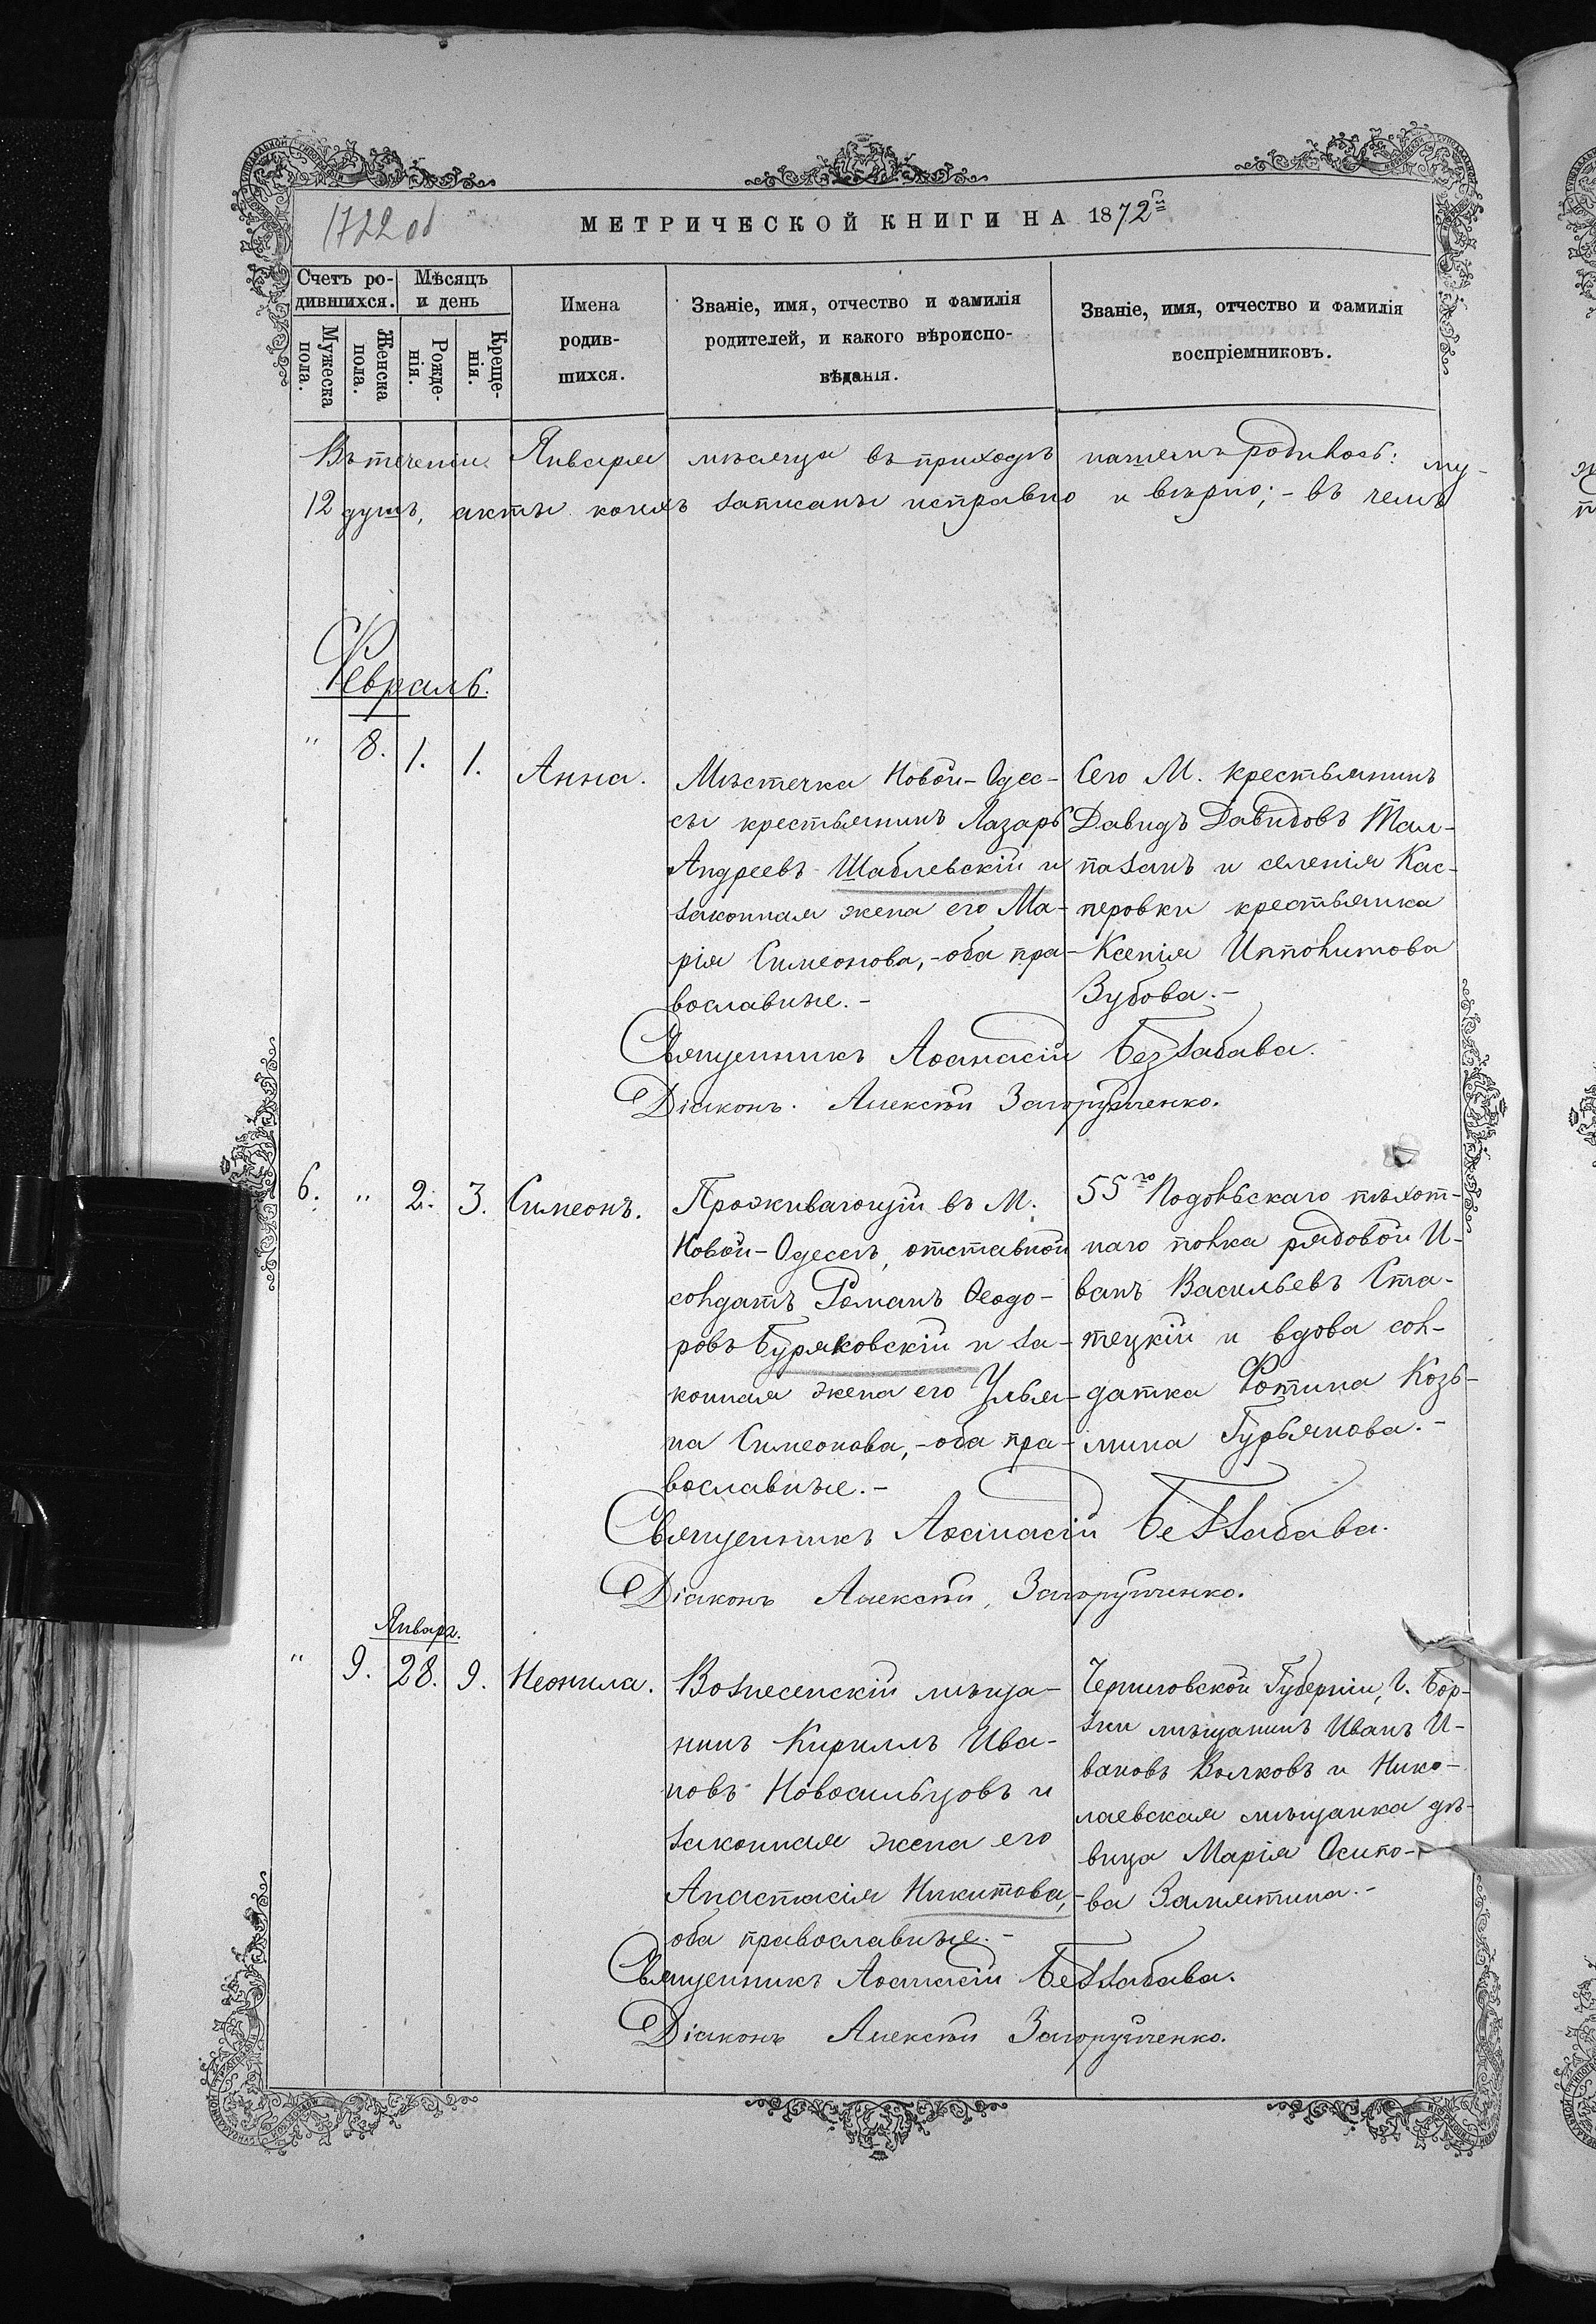 1722 об
МЕТРИЧЕСКОЙ КНИГИ НА 1872й
Счетъ ро-
дившихся.
Мѣсяцъ
и день
Мужеска
пола.
Женска
пола.
Рожде-
нія.
Креще-
нія.
Имена
родив-
шихся.
Званіе, имя, отчество и фамилія
родителей, и какого вѣроиспо-
вѣданія.
Званіе, имя, отчество и фамилія
воспріемниковъ.
Въ теченіи Января мѣсяца въ приходѣ нашемъ родилось: му-
12 душъ, акты коихъ записаны исправно и вѣрно; - въ чемъ
Февраль.
" 8. 1. 1. Анна.
Мѣстечка Новой-Одес-
сы крестьянинъ Лазарь
Андреевъ Шаблевскій и
законная жена его Ма-
рія Симеонова, - оба пра-
вославные. -
Сего М. крестьянинъ
Давидъ Давидовъ Тал-
пазанъ и селенія Кас-
перовки крестьянка
Ксенія Ипполитова
Зубова. -
Священникъ Аѳанасій Беззабава.
Діаконъ. Алексѣй Загорульченко.
6. " 2. 3. Симеонъ.
Проживающій въ М.
Новой-Одессѣ, отставной
солдатъ Романъ Ѳеодо-
ровъ Буряковскій и за-
конная жена его Улья-
на Симеонова, - оба пра-
вославные. -
55го Подольскаго пѣхот-
наго полка рядовой И-
ванъ Васильевъ Ста-
тецкій и вдова сол-
датка Фотина Козь-
мина Гурьянова. -
Священникъ Аѳанасій Беззабава.
Діаконъ Алексѣй Загорульченко.
Январ.
" 9. 28. 9. Неонила.
Вознесенскій мѣща-
нинъ Кириллъ Ива-
новъ Новосильцовъ и
законная жена его
Анастасія Никитова,
оба православные. -
Черниговской Губерніи, г. Бор-
зни мѣщанинъ Иванъ И-
вановъ Волковъ и Нико-
лаевская мѣщанка дѣ-
вица Марія Осипо-
ва Замятина. -
Священникъ Аѳанасій Беззабава.
Діаконъ Алексѣй Загорульченко.